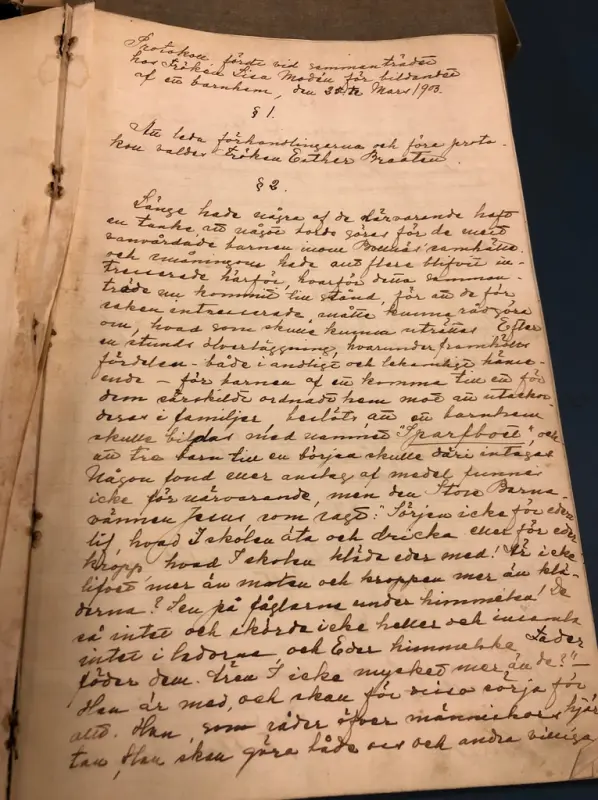 Protokoll, fördt vid sammanträdet
hos Fröken Lisa Modén för bildandet
af ett barnhem, den 31ste Mars 1903.
§ 1.
Att leda förhandlingarna och föra proto-
koll valdes Fröken Esther Braaten.
§ 2.
Länge hade några af de närvarande haft
en tanke att något borde göras för de mest
vanvårdade barnen inom Bollnäs samhälle
och småningom hade allt flera blifvit in-
tresserade härför, hvarför detta samman-
träde nu kommit till stånd, för att de för
saken intresserade måtte kunna rådgöra
om, hvad som skulle kunna uträttas. Efter
en stunds öfverläggning, hvarunder framhölls
fördelen - både i andligt och lekamligt hänse-
ende - för barnen af att komma till ett för
dem särskildt ordnadt hem mot att utackor-
deras i familjer beslöts att ett barnhem
skulle bildas med namnet "Sparfboet", och
att tre barn till en början skulle däri intagas.
Någon fond eller anslag af medel funnes
icke för närvarande, men den Store Barna-
vännen Jesus som sagt: "Sörjen icke för eder
lif, hvad I skolen äta och dricka eller för eder
kropp hvad I skolen kläda eder med! Är icke
lifvet mer än maten och kroppen mer än klä-
derna? Sen på fåglarne under himmelen! De
så intet och skörda icke heller och insamla
intet i ladorna och Eder himmelske Fader
föder dem. Ären I icke mycket mer än de?" -
Han är med, och skall för visso sörja för
allt. Han, som råder öfver människors hjär-
tan, Han skall göra både oss och andra villiga